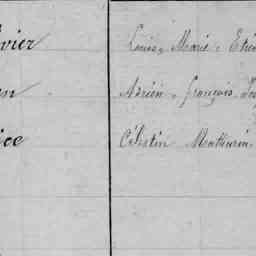 vier Louis, Marie, Etie
n Adrien, françois, Jos
ice Célestin Mathurin.